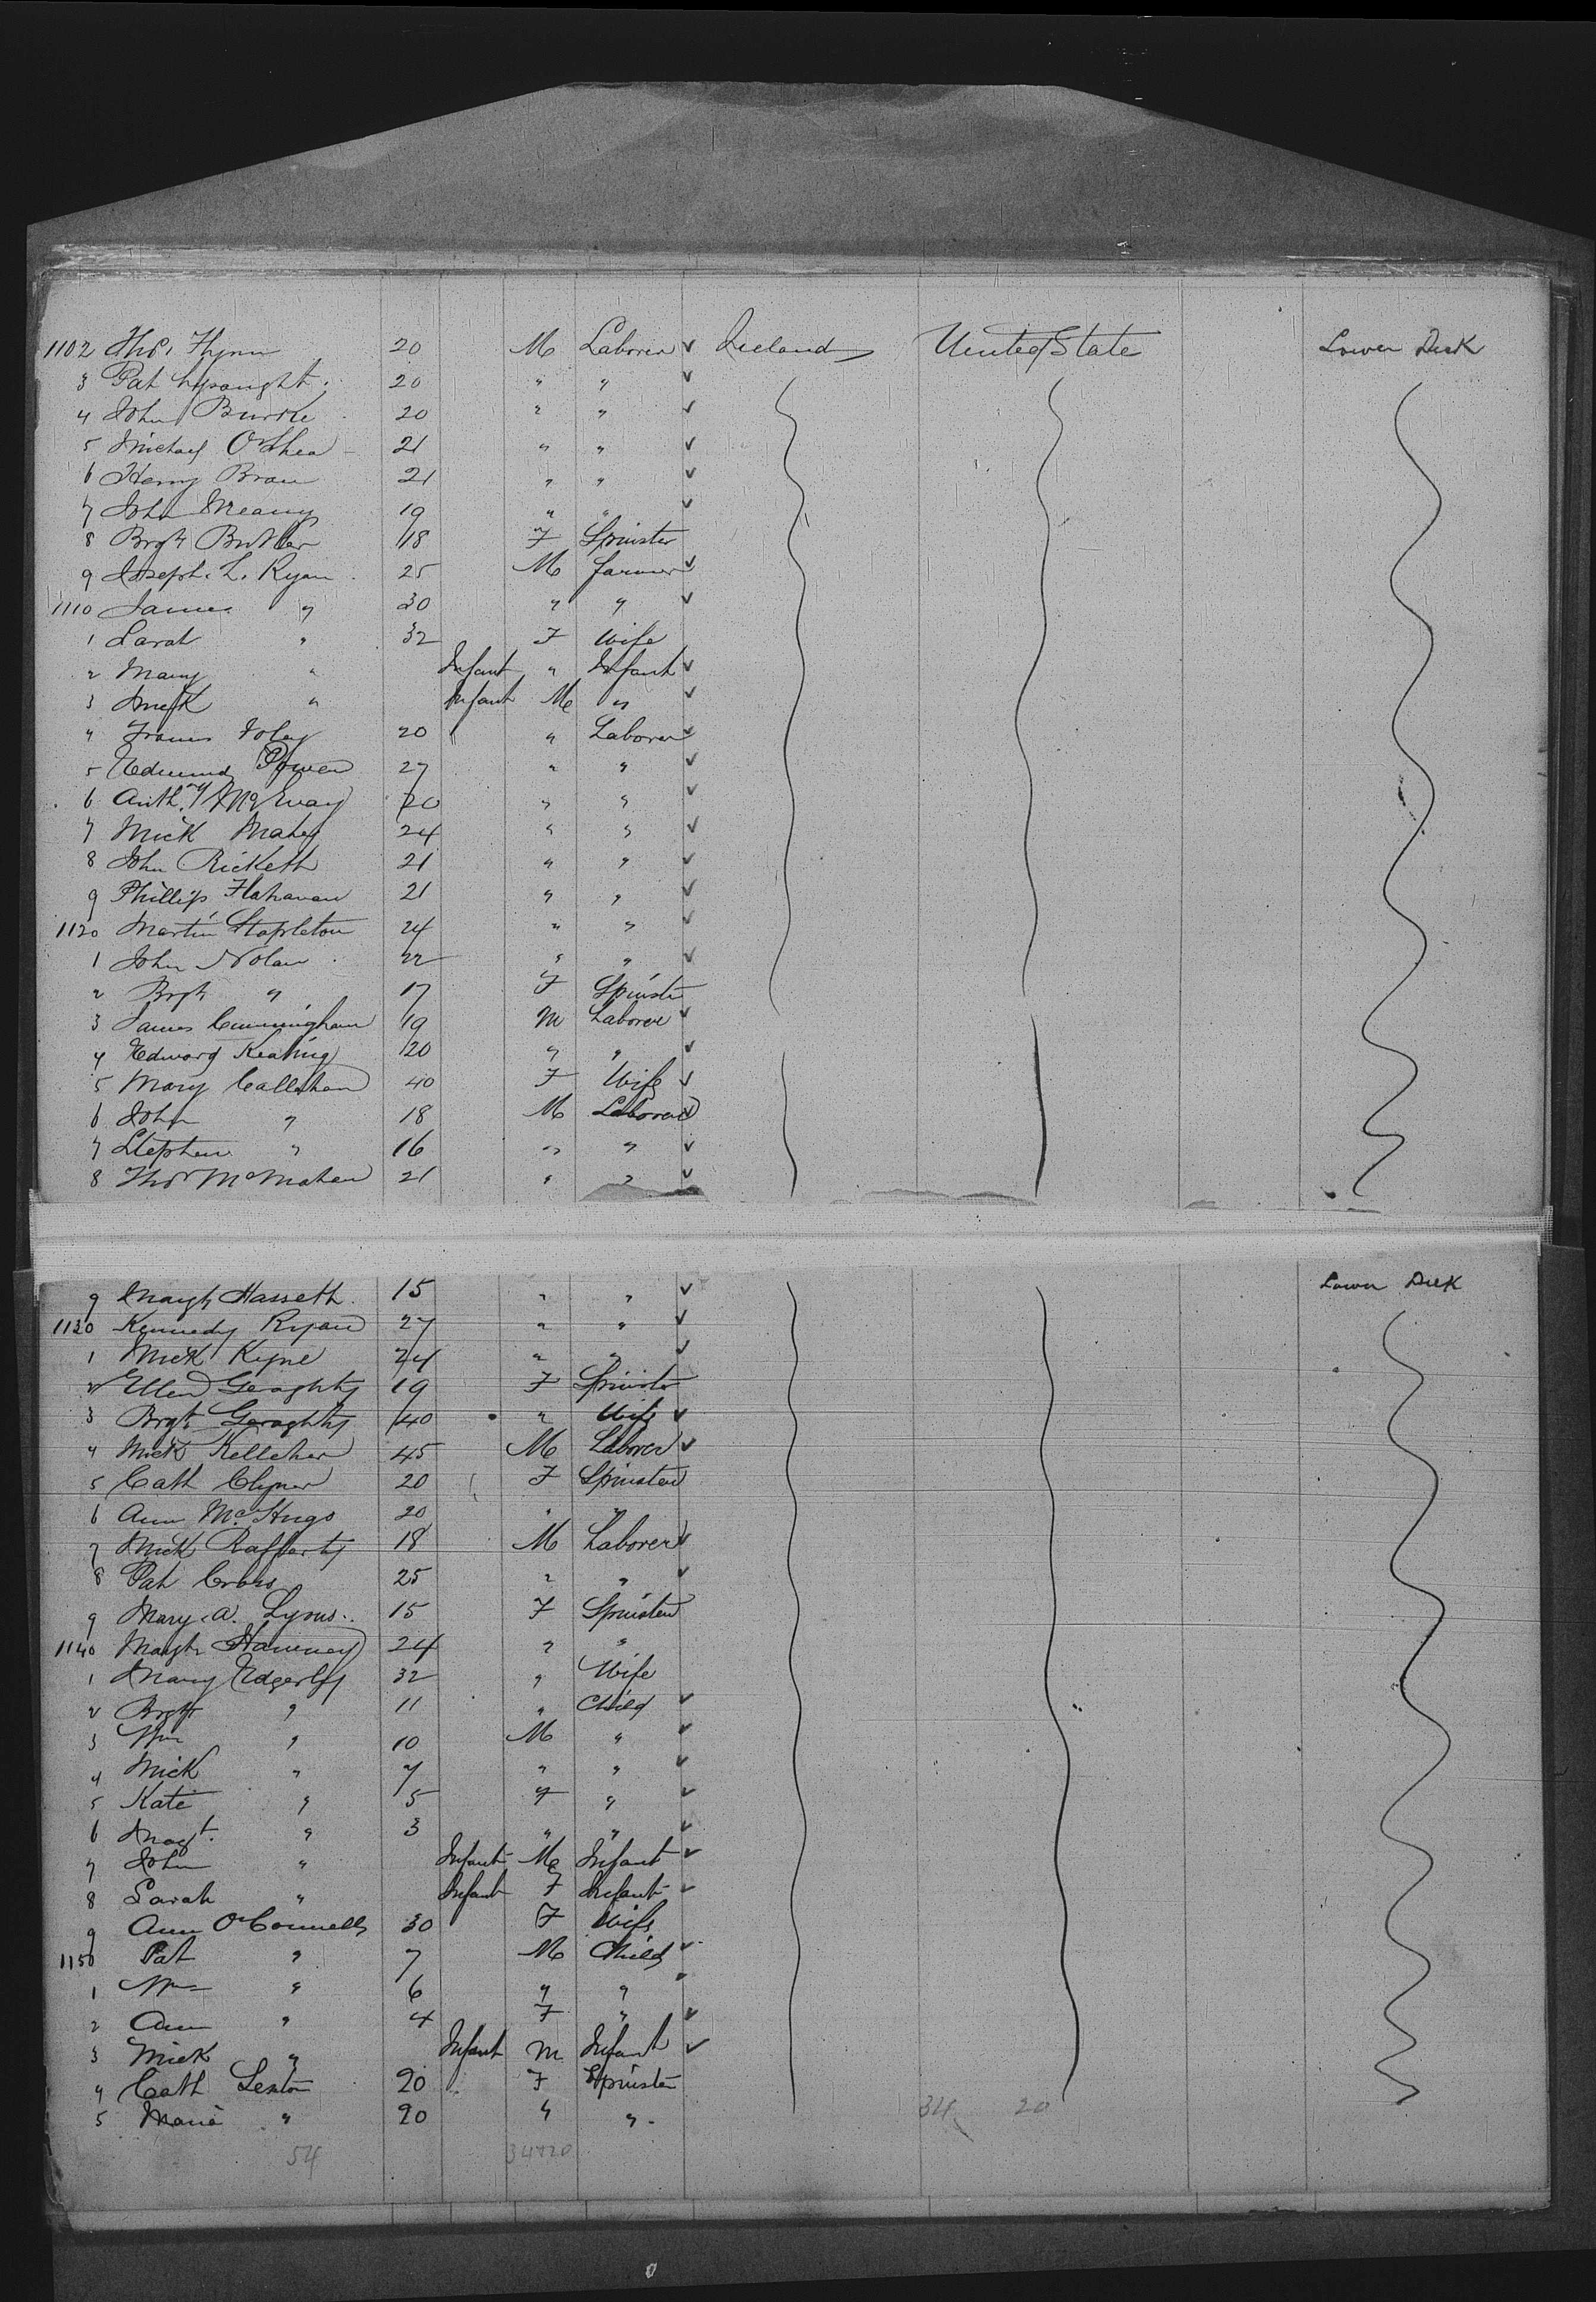 1102 Thos. Flynn 20 M Laborer ✓ Ireland United State Lower Deck
3 Pat Lysaught 20 " " ✓
4 John Burke 20 " " ✓
5 Michael O'Shea 21 " " ✓
6 Henry Bran 21 " " ✓
7 John Meany 19 " " ✓
8 Brgt Butler 18 F Spinster
9 Joseph. L. Ryan 25 M farmer ✓
1110 James " 30 " " ✓
1 Sarah " 32 F Wife
2 Mary " Infant " Infant ✓
3 Mick " Infant M " ✓
4 Francis Foley 20 " Laborer ✓
5 Edmund Power 27 " " ✓
6 Anth.y McEvay 20 " " ✓
7 Mick Maher 24 " " ✓
8 John Ricketh 21 " " ✓
9 Phillip Flahavan 21 " " ✓
1120 Martin Stapleton 24 " " ✓
1 John Nolan 22 " " ✓
2 Brgt " 17 F Spinster
3 James Cunningham 19 M Laborer ✓
4 Edward Keating 20 " " ✓
5 Mary Callahan 40 F Wife ✓
6 John " 18 M Laborer ✓
7 Stephen " 16 " " ✓
8 Thos McMahon 21 " " ✓
9 Margt Hassett 15 " " ✓ Lower Deck
1130 Kennedy Ryan 27 " " ✓
1 Mick Kyne 24 " " ✓
2 Ellen Geraghty 19 F Spinster
3 Brgt Geraghty 40 " Wife ✓
4 Mick Kelleher 45 M Laborer ✓
5 Cath Clyner 20 F Spinster
6 Ann McHugo 20 " "
7 Mick Rafferty 18 M Laborer ✓
8 Pat Cross 25 " " ✓
9 Mary. A. Lyons 15 F Spinster
1140 Margt Hanney 24 " "
1 Mary Edgerly 32 " Wife
2 Brgt " 11 " Child ✓
3 Wm " 10 M " ✓
4 Mick " 7 " " ✓
5 Kate " 5 F " ✓
6 Magt. " 3 " " ✓
7 John " Infant M Infant ✓
8 Sarah " Infant F Infant ✓
9 Ann O'Connell 30 F Wife
1150 Pat " 7 M Child ✓
1 Wm " 6 " "
2 Ann " 4 F " ✓
3 Mick " Infant M Infant ✓
4 Cath Sexton 20 F Spinster
5 Maria " 20 " "
34 20
54 34 20